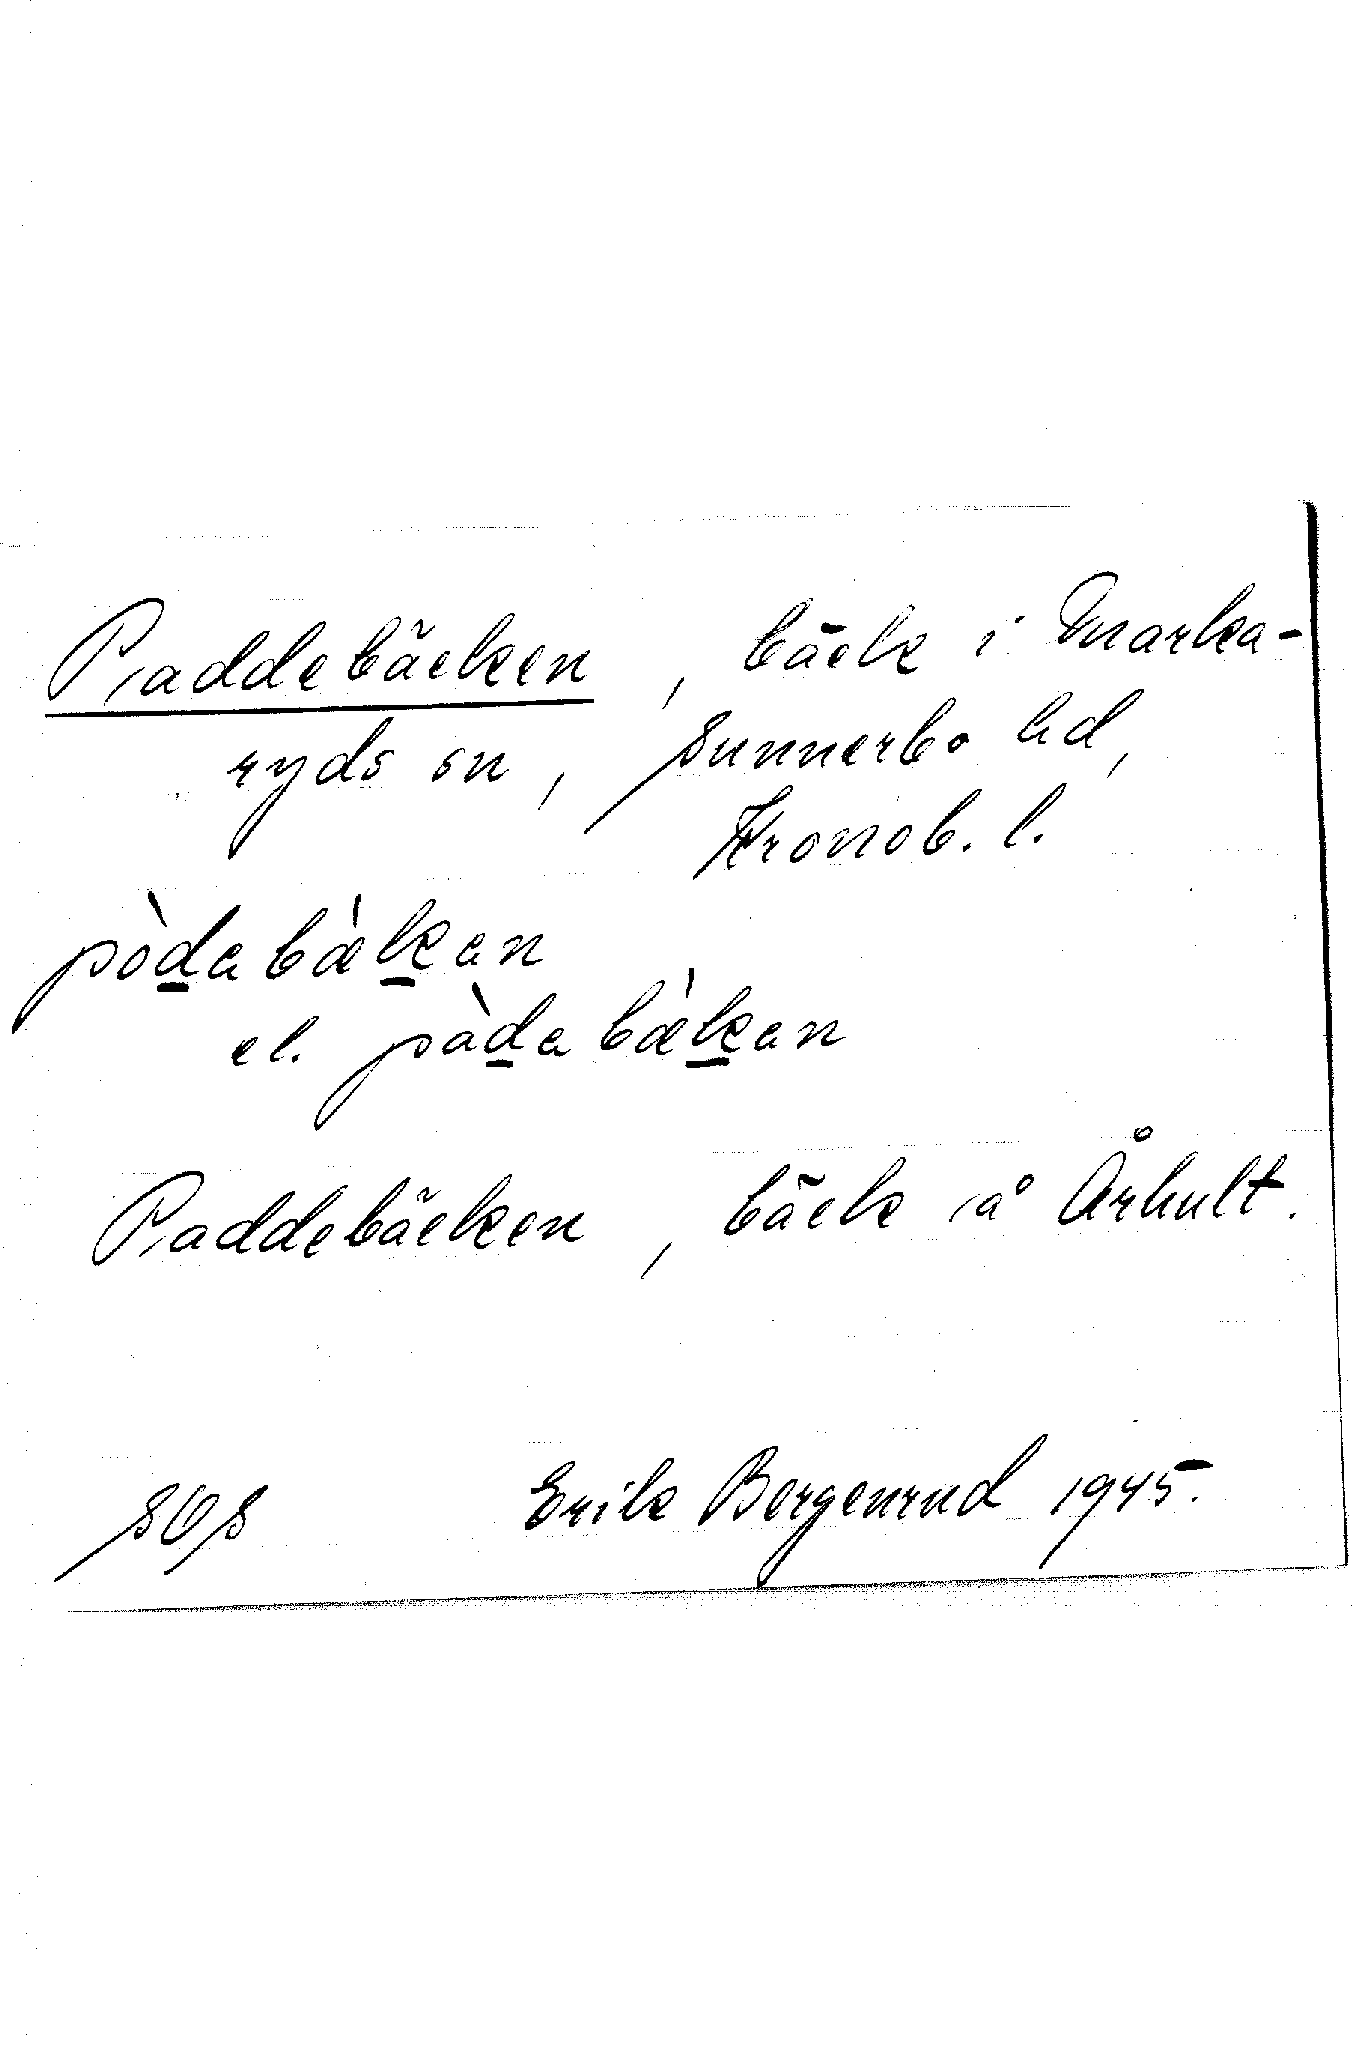 Paddebäcken, bäck i Marka-
ryds sn, Sunnerbo hd,
Kronob. l.
pòd̲abæ̀k̲an
el. pàd̲abæ̀k̲an
Paddebäcken, bäck å Århult.
SOS Erik Bergenrud 1945.